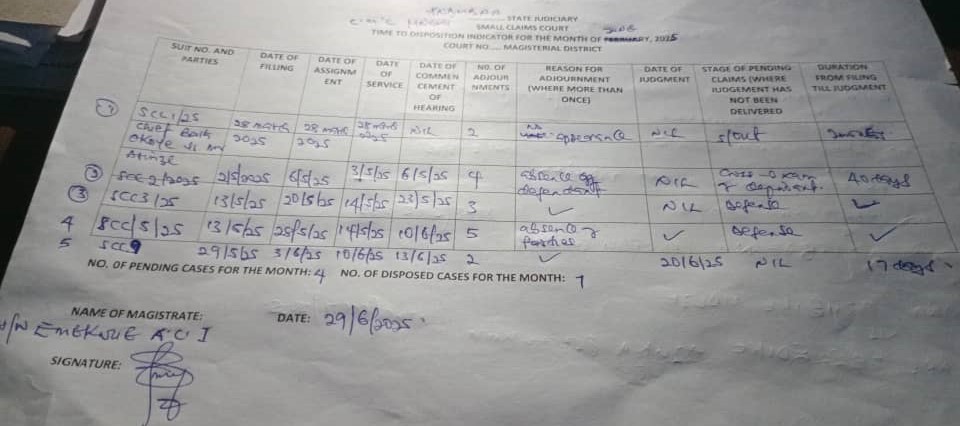 ANAMBRA STATE JUDICIARY
SMALL CLAIMS COURT
TIME TO DISPOSITION INDICATOR FOR THE MONTH OF JUNE, 2025
COURT NO.... MAGISTERIAL DISTRICT
SUIT NO. AND PARTIES DATE OF FILLING DATE OF ASSIGNM ENT DATE OF SERVICE DATE OF COMMEN CEMENT OF HEARING NO. OF ADJOUR NMENTS REASON FOR ADJOURNMENT (WHERE MORE THAN ONCE) DATE OF JUDGMENT STAGE OF PENDING CLAIMS (WHERE JUDGEMENT HAS NOT BEEN DELIVERED DURATION FROM FILING TILL JUDGMENT
1 SCC 1/25 28 2025 28 2025 28 2025 NIL 2 No appearance NIL s/out
Okoye vs
2 SCC 2/2025 2/5/2025 6/5/25 3/5/25 6/5/25 4 absence of defendant NIL Cross-exam 40 days
3 SCC3/25 13/5/25 20/5/25 14/5/25 23/5/25 3 ✓ NIL Defense ✓
4 SCC/5/25 13/5/25 28/5/25 14/5/25 10/6/25 5 absence of parties ✓ Defense ✓
5 SCC9 29/5/25 3/6/25 10/6/25 13/6/25 2 ✓ 20/6/25 NIL 17 days
NO. OF PENDING CASES FOR THE MONTH: 4 NO. OF DISPOSED CASES FOR THE MONTH: 1
NAME OF MAGISTRATE: DATE: 29/6/2025
A.C I
SIGNATURE: